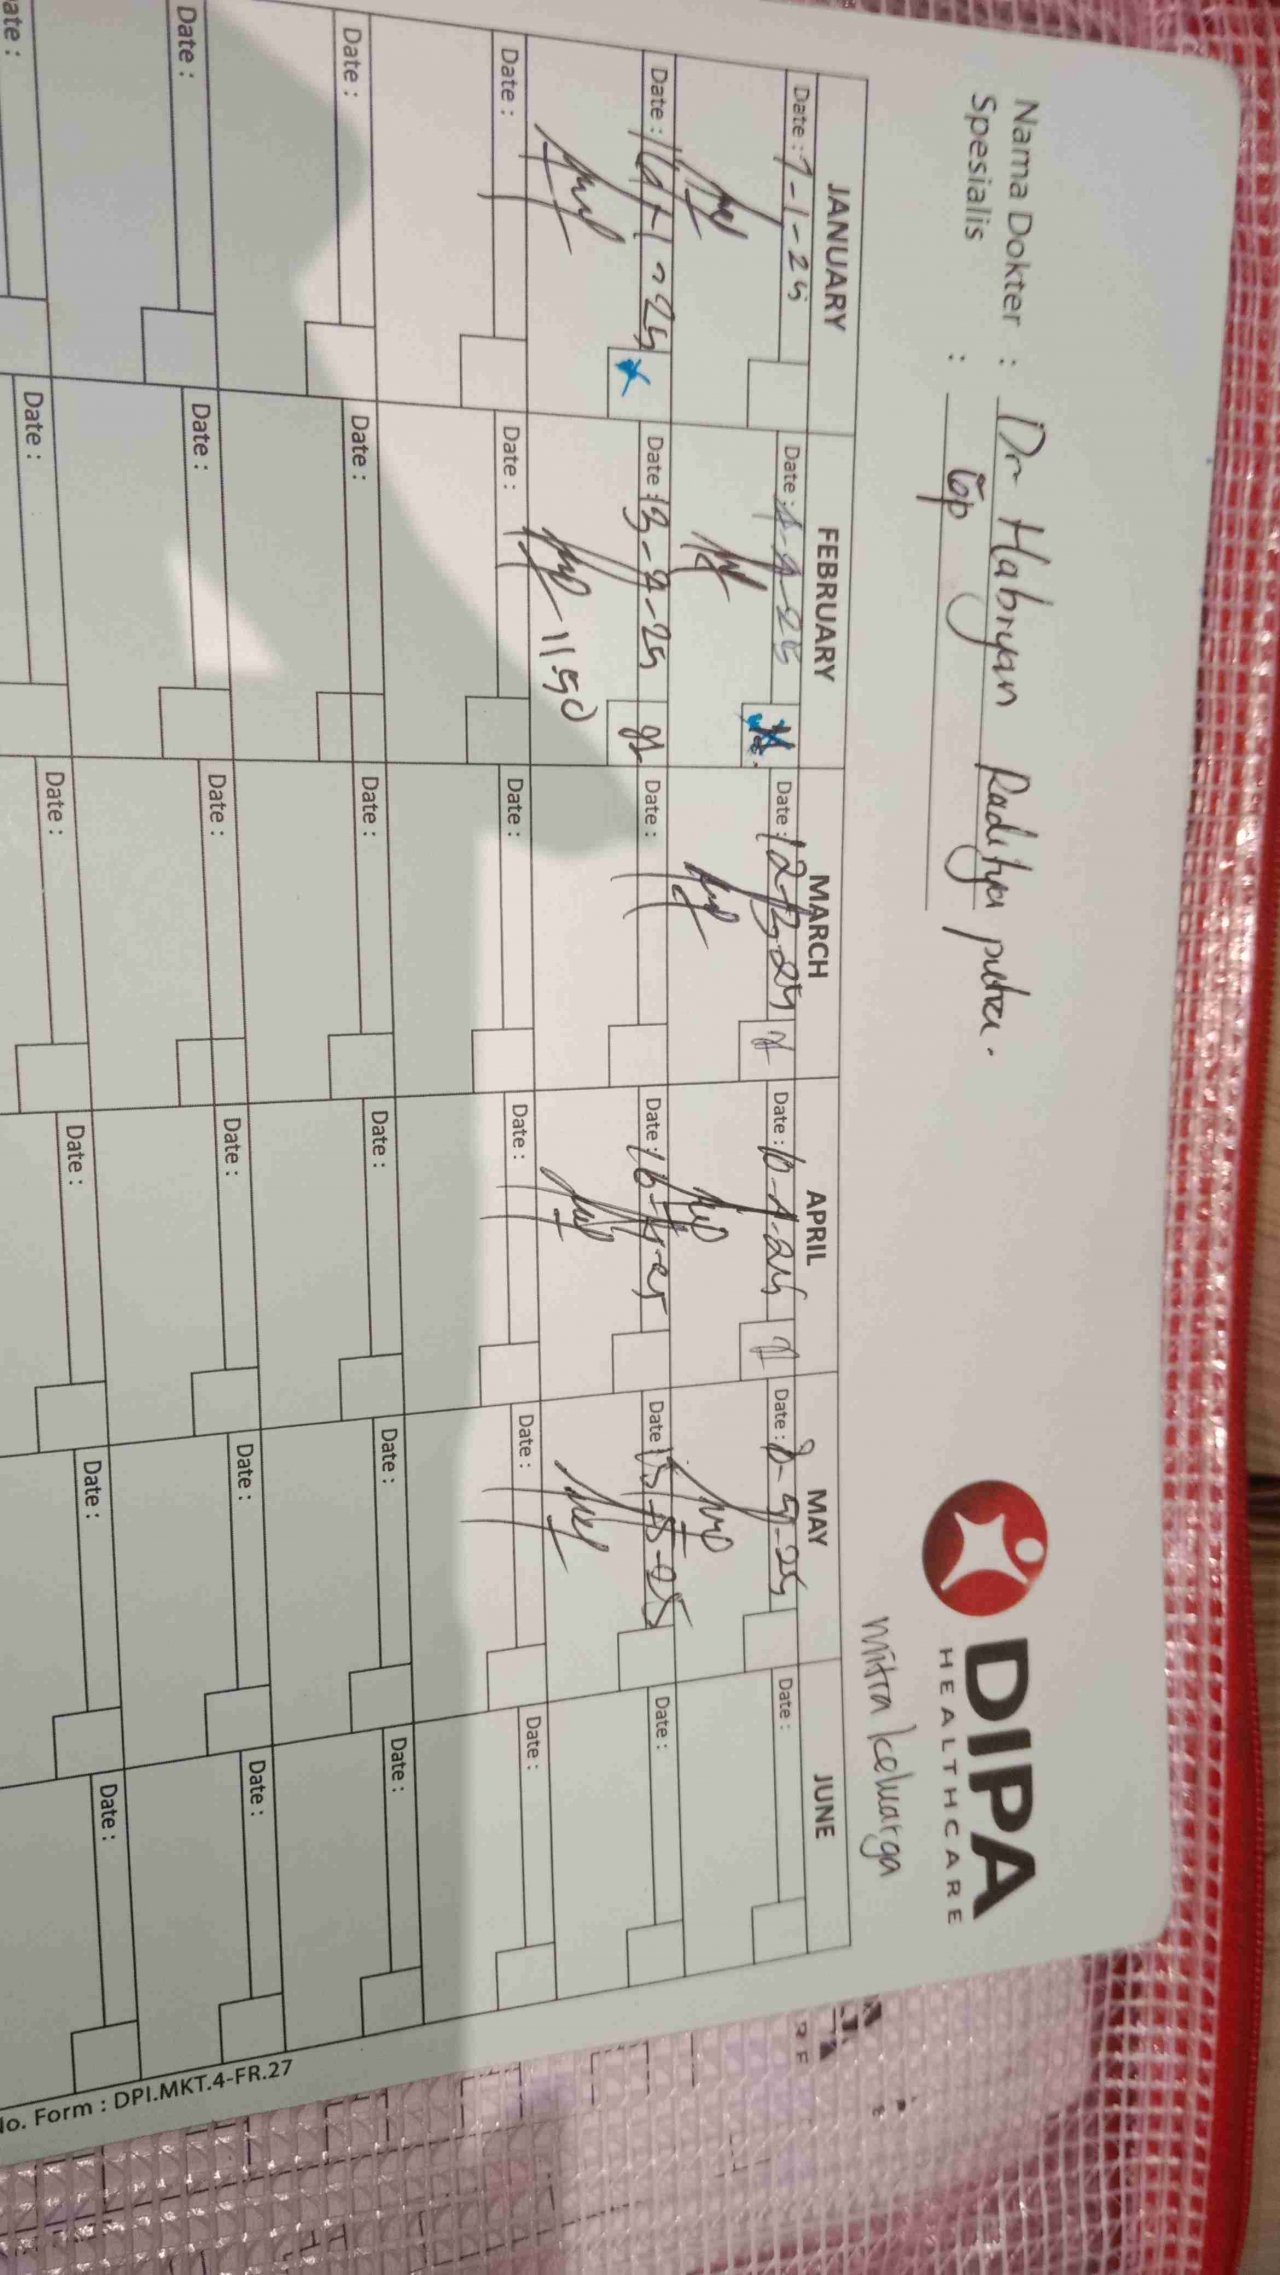 Nama Dokter : Dr Habryan Raditya putra.
Spesialis :
DIPA
HEALTHCARE
mitra keluarga
JANUARY FEBRUARY MARCH APRIL MAY JUNE
Date : 7-1-25 Date : Date : 12-3-25 Date : 10-4-25 Date : 8-5-25 Date :
Date : Date : 13-2-25 Date : Date : 16-4-25 Date : 15-5-25 Date :
1150
Date : Date : Date : Date : Date : Date :
Date : Date : Date : Date : Date : Date :
Date : Date : Date : Date : Date : Date :
Date : Date : Date : Date : Date : Date :
No. Form : DPI.MKT.4-FR.27